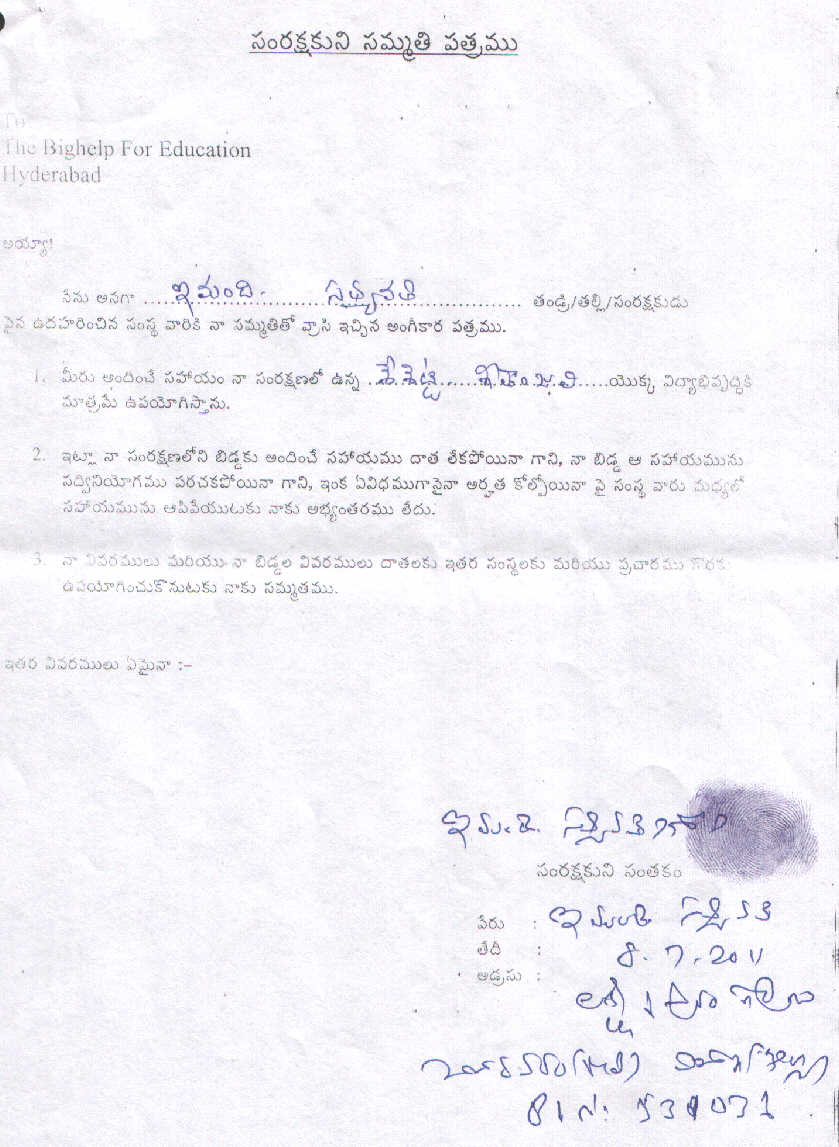 సంరక్షకుని సమ్మతి పత్రము
To
The Bighelp For Education
Hyderabad
అయ్యా!
నేను అనగా ఇమంది. సత్యవతి తండ్రి/తల్లి/సంరక్షకుడు
పైన ఉదహరించిన సంస్థ వారికి నా సమ్మతితో వ్రాసి ఇచ్చిన అంగీకార పత్రము.
1. మీరు అందించే సహాయం నా సంరక్షణలో ఉన్న యొక్క విద్యాభివృద్ధికి
మాత్రమే ఉపయోగిస్తాను.
2. ఇట్లా నా సంరక్షణలోని బిడ్డకు అందించే సహాయము దాత లేకపోయినా గాని, నా బిడ్డ ఆ సహాయమును
సద్వినియోగము పరచకపోయినా గాని, ఇంక ఏవిధముగానైనా అర్హత కోల్పోయినా పై సంస్థ వారు మధ్యలో
సహాయమును ఆపివేయుటకు నాకు అభ్యంతరము లేదు.
3. నా వివరములు మరియు నా బిడ్డల వివరములు దాతలకు ఇతర సంస్థలకు మరియు ప్రచారము కొరకు
ఉపయోగించుకొనుటకు నాకు సమ్మతము.
ఇతర వివరములు ఏమైనా :-
సంరక్షకుని సంతకం
పేరు : ఇమంది సత్యవతి
తేదీ : 8.7.2011
అడ్రసు :
PIN: 531071